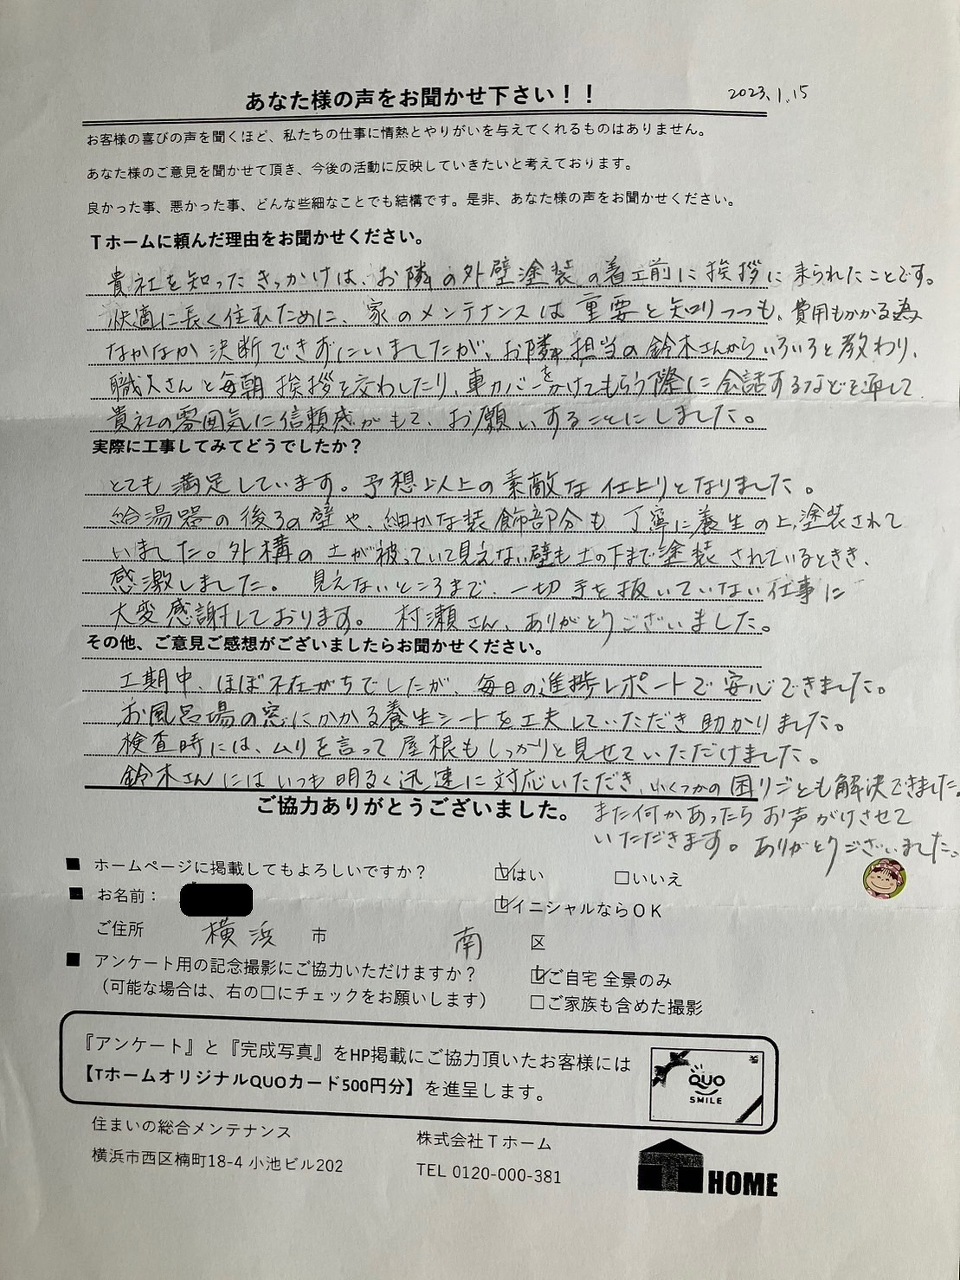 あなた様の声をお聞かせ下さい！！
2023.1.15
お客様の喜びの声を聞くほど、私たちの仕事に情熱とやりがいを与えてくれるものはありません。
あなた様のご意見を聞かせて頂き、今後の活動に反映していきたいと考えております。
良かった事、悪かった事、どんな些細なことでも結構です。是非、あなた様の声をお聞かせください。
Tホームに頼んだ理由をお聞かせください。
貴社を知ったきっかけは、お隣の外壁塗装の着工前に挨拶に来られたことです。
快適に長く住むために、家のメンテナンスは重要と知りつつも、費用もかかる為
なかなか決断できずにいましたが、お隣担当の鈴木さんからいろいろと教わり、
職人さんと毎朝挨拶を交わしたり、車カバーを分けてもらう際に会話するなどを通して
貴社の雰囲気に信頼感がもて、お願いすることにしました。
実際に工事してみてどうでしたか？
とても満足しています。予想以上の素敵な仕上りとなりました。
給湯器の後ろの壁や、細かな装飾部分も丁寧に養生の上、塗装されて
いました。外構の土が被っていて見えない壁も土の下まで塗装されているときき、
感激しました。見えないところまで、一切手を抜いていない仕事に
大変感謝しております。村瀬さん、ありがとうございました。
その他、ご意見ご感想がございましたらお聞かせください。
工期中、ほぼ不在がちでしたが、毎日の進捗レポートで安心できました。
お風呂場の窓にかかる養生シートを工夫していただき助かりました。
検査時には、ムリを言って屋根もしっかりと見せていただけました。
鈴木さんにはいつも明るく迅速に対応いただき、いくつかの困りごとも解決できました。
ご協力ありがとうございました。
また何かあったらお声がけさせて
いただきます。ありがとうございました。
■ ホームページに掲載してもよろしいですか？ ☑はい □いいえ
■ お名前： ☑イニシャルならOK
ご住所 横浜 市 南 区
■ アンケート用の記念撮影にご協力いただけますか？ ☑ご自宅 全景のみ
（可能な場合は、右の□にチェックをお願いします） □ご家族も含めた撮影
『アンケート』と『完成写真』をHP掲載にご協力頂いたお客様には
【TホームオリジナルQUOカード500円分】を進呈します。
QUO
SMILE
住まいの総合メンテナンス 株式会社Tホーム
横浜市西区楠町18-4 小池ビル202 TEL 0120-000-381
T HOME